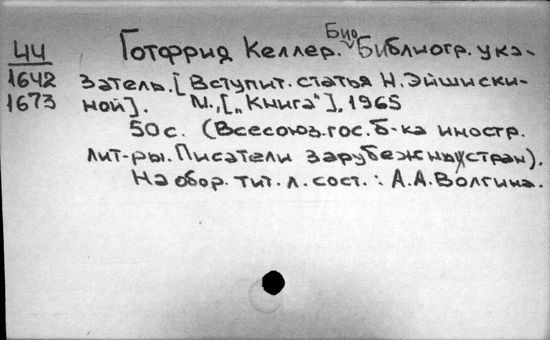 44 Готфрид Келлер. Био-Библиогр. ука-
1642 затель. [Вступит. статья Н. Эйшиски-
1673 ной]. М., ["Книга"], 1965
50 с. (Всесоюз. гос. б-ка иностр.
лит-ры. Писатели зарубежных стран).
На обор. тит. л. сост.: А. А. Волгина.